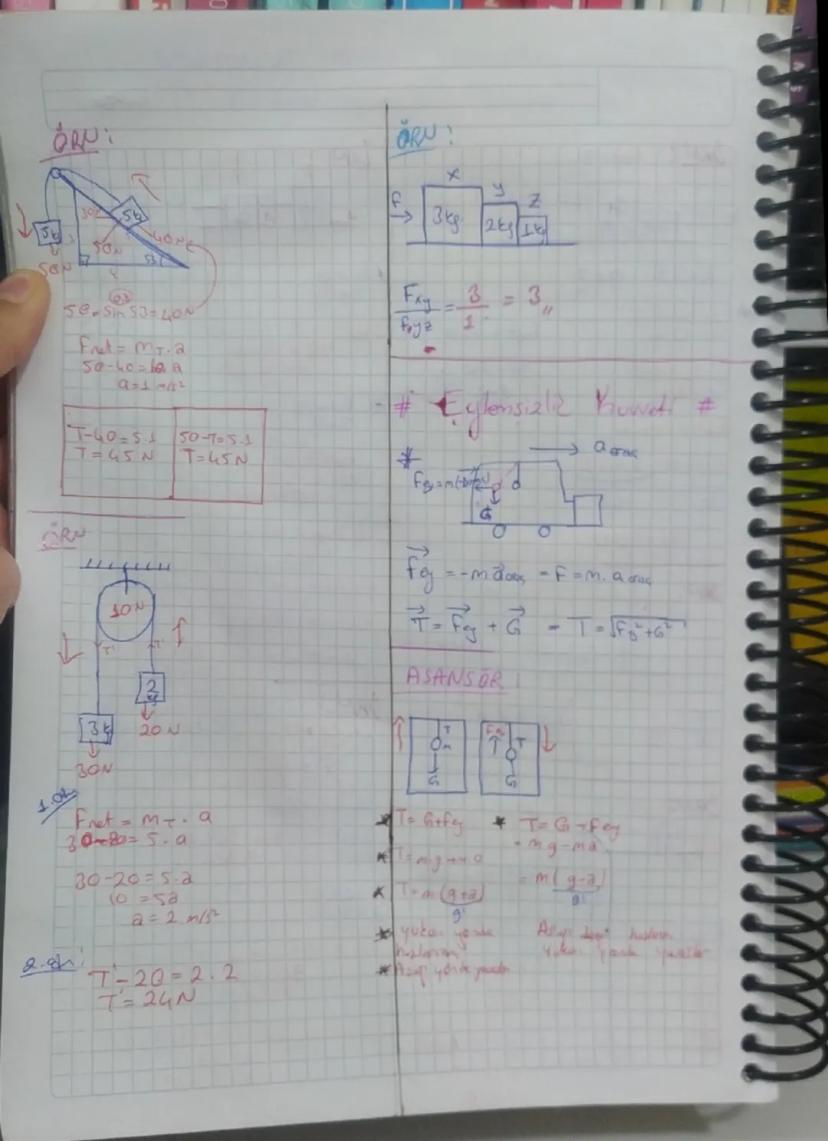 ÖRN:
5kg
50N
50N
40N
53
50.sin53=40N
Fnet = mT.a
50-40=10.a
a=1 m/s²
T-40=5.1
T=45N
50-T=5.1
T=45N
ÖRN
10N
T
T
2
kg
3kg
20N
30N
Fnet = mT.a
30-20=5.a
30-20=5.a
10=5a
a=2 m/s²
T-20=2.2
T=24N
ÖRN:
x
y
z
F
3kg
2kg
1kg
Fxy
Fyz
= 3/1 = 3,,
# Eylemsizlik Kuvveti #
a araç
G
Fey = -m a araç - F = m.a araç
T = Fey + G - T = √Fey²+G²
ASANSÖR:
T
m
G
Fey
T
G
* T=G+Fey
* T=mg+ma
* T=m(g+a)
g'
* yukarı yönde
hızlanan
* Aşağı yönde yavaşlar
* T=G-Fey
= mg-ma
= m(g-a)
g'
Aşağı hızlanan
yukarı yönde yavaşlar